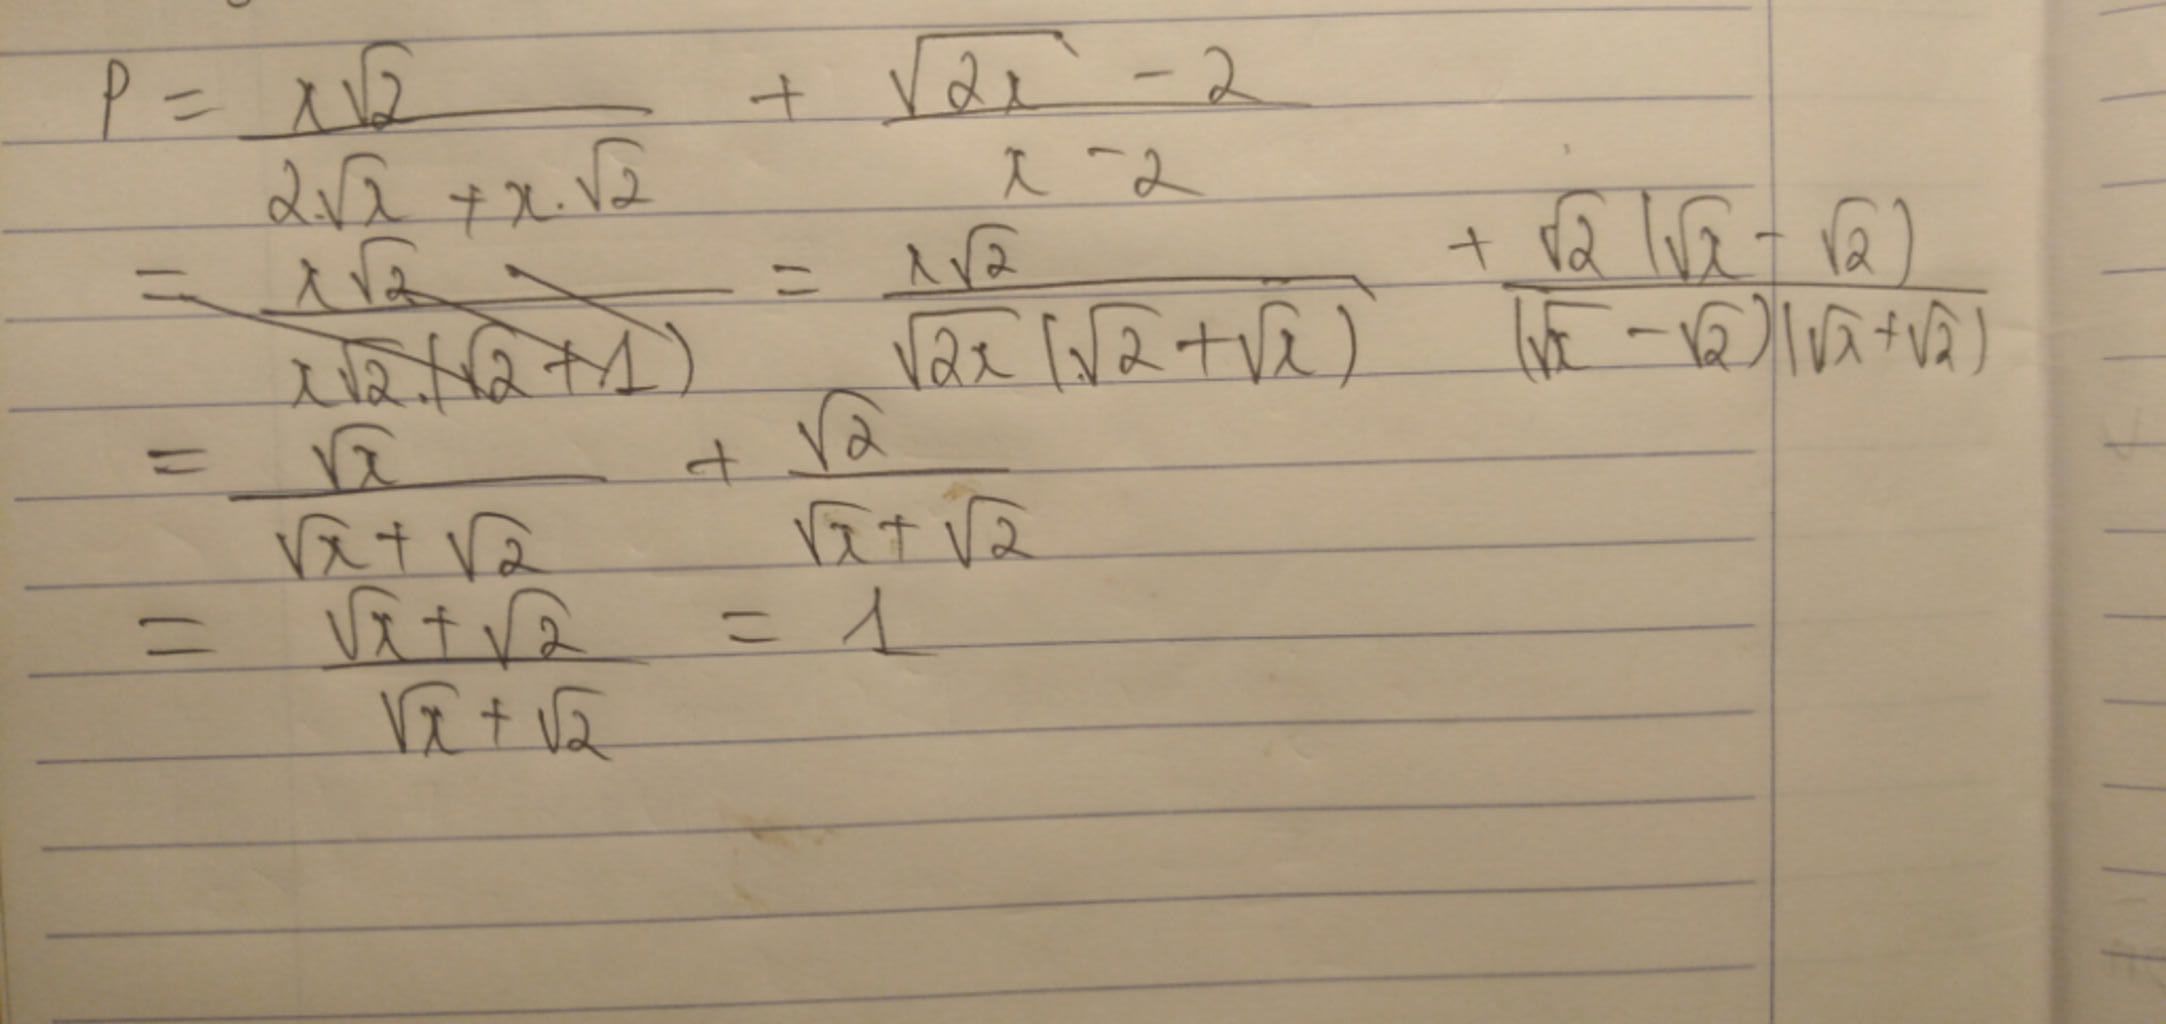 P = x√2 / (2.√x + x.√2) + (√(2x) - 2) / (x - 2)
= x√2 / (x√2.(√2 + 1)) = x√2 / (√(2x) (√2 + √x)) + √2 (√x - √2) / ((√x - √2)(√x + √2))
= √x / (√x + √2) + √2 / (√x + √2)
= (√x + √2) / (√x + √2) = 1